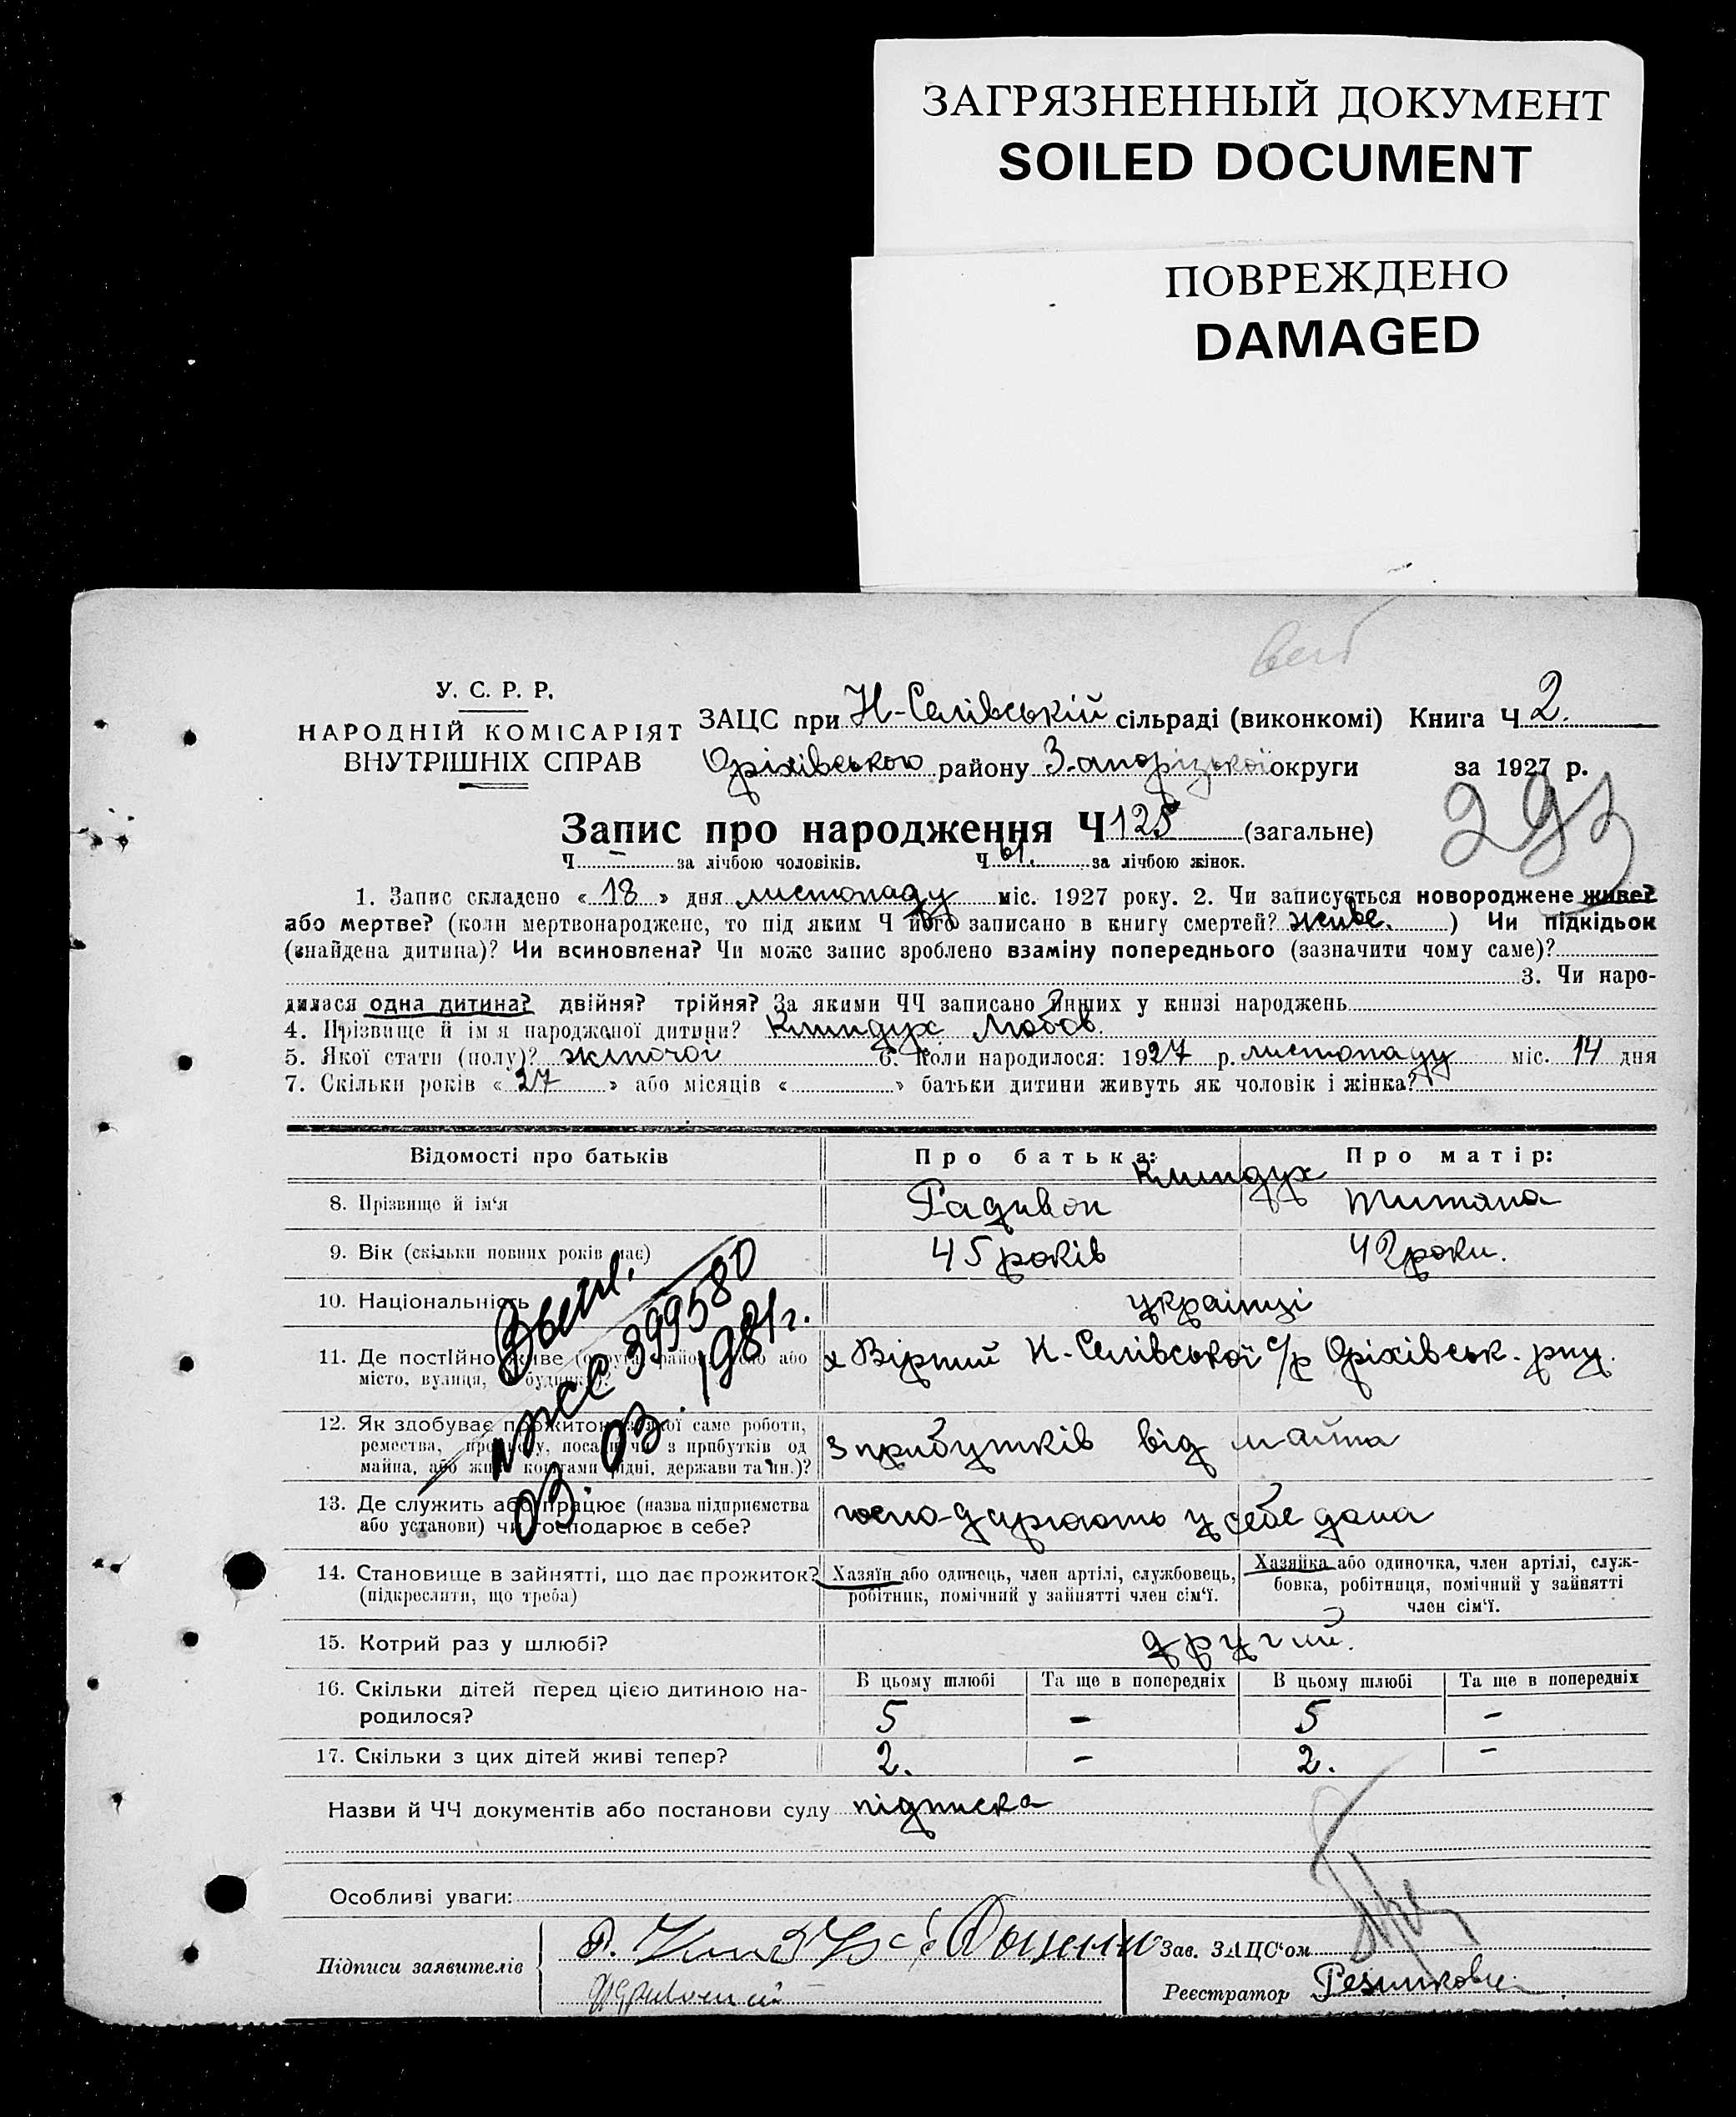 ЗАГРЯЗНЕННЫЙ ДОКУМЕНТ
SOILED DOCUMENT
ПОВРЕЖДЕНО
DAMAGED
У. С. Р. Р.
НАРОДНІЙ КОМІСАРІЯТ
ВНУТРІШНІХ СПРАВ
ЗАЦС при Н-Селівській сільраді (виконкомі) Книга Ч 2.
Оріхівського району Запорізької округи за 1927 р.
293
Запис про народження Ч 125 (загальне)
Ч — за лічбою чоловіків. Ч 61. за лічбою жінок.
1. Запис складено « 18 » дня листопаду міс. 1927 року. 2. Чи записується новороджене живе?
або мертве? (коли мертвонароджене, то під яким Ч його записано в книгу смертей? живе. ) Чи підкідьок
(знайдена дитина)? Чи всиновлена? Чи може запис зроблено взаміну попереднього (зазначити чому саме)?
3. Чи наро-
дилася одна дитина? двійня? трійня? За якими ЧЧ записано инших у книзі народжень
4. Прізвище й ім'я народженої дитини? Клиндух Любов.
5. Якої стати (полу)? жіночої 6. Коли народилося: 1927 р. листопаду міс. 14 дня
7. Скільки років « 27 » або місяців « » батьки дитини живуть як чоловік і жінка?
Відомості про батьків Про батька: Про матір:
Клиндух
8. Прізвище й ім'я Радивон Титяна
9. Вік (скільки повних років має) 45 років 42 роки.
10. Національність українці
11. Де постійно живе (округа, район, село або х Вірний Н-Селівської с/р Оріхівськ. рну.
місто, вулиця, будинок)?
12. Як здобуває прожиток, з якої саме роботи, з прибутків від майна
ремества, промислу, посади чи з прибутків од
майна, або живе коштами рідні, держави та ин.)?
13. Де служить або працює (назва підприємства господарюють у себе дома
або установи) чи господарює в себе?
14. Становище в зайнятті, що дає прожиток? Хазяїн або одинець, член артілі, службовець, Хазяйка або одиночка, член артілі, служ-
(підкреслити, що треба) робітник, помічний у зайнятті член сім'ї. бовка, робітниця, помічний у зайнятті
член сім'ї.
15. Котрий раз у шлюбі? другий.
16. Скільки дітей перед цією дитиною на- В цьому шлюбі Та ще в попередніх В цьому шлюбі Та ще в попередніх
родилося? 5 — 5 —
17. Скільки з цих дітей живі тепер? 2. — 2. —
399580
03. 03. 1981г.
Назви й ЧЧ документів або постанови суду підписка
Особливі уваги:
Підписи заявителів
Зав. ЗАЦС'ом
Реєстратор